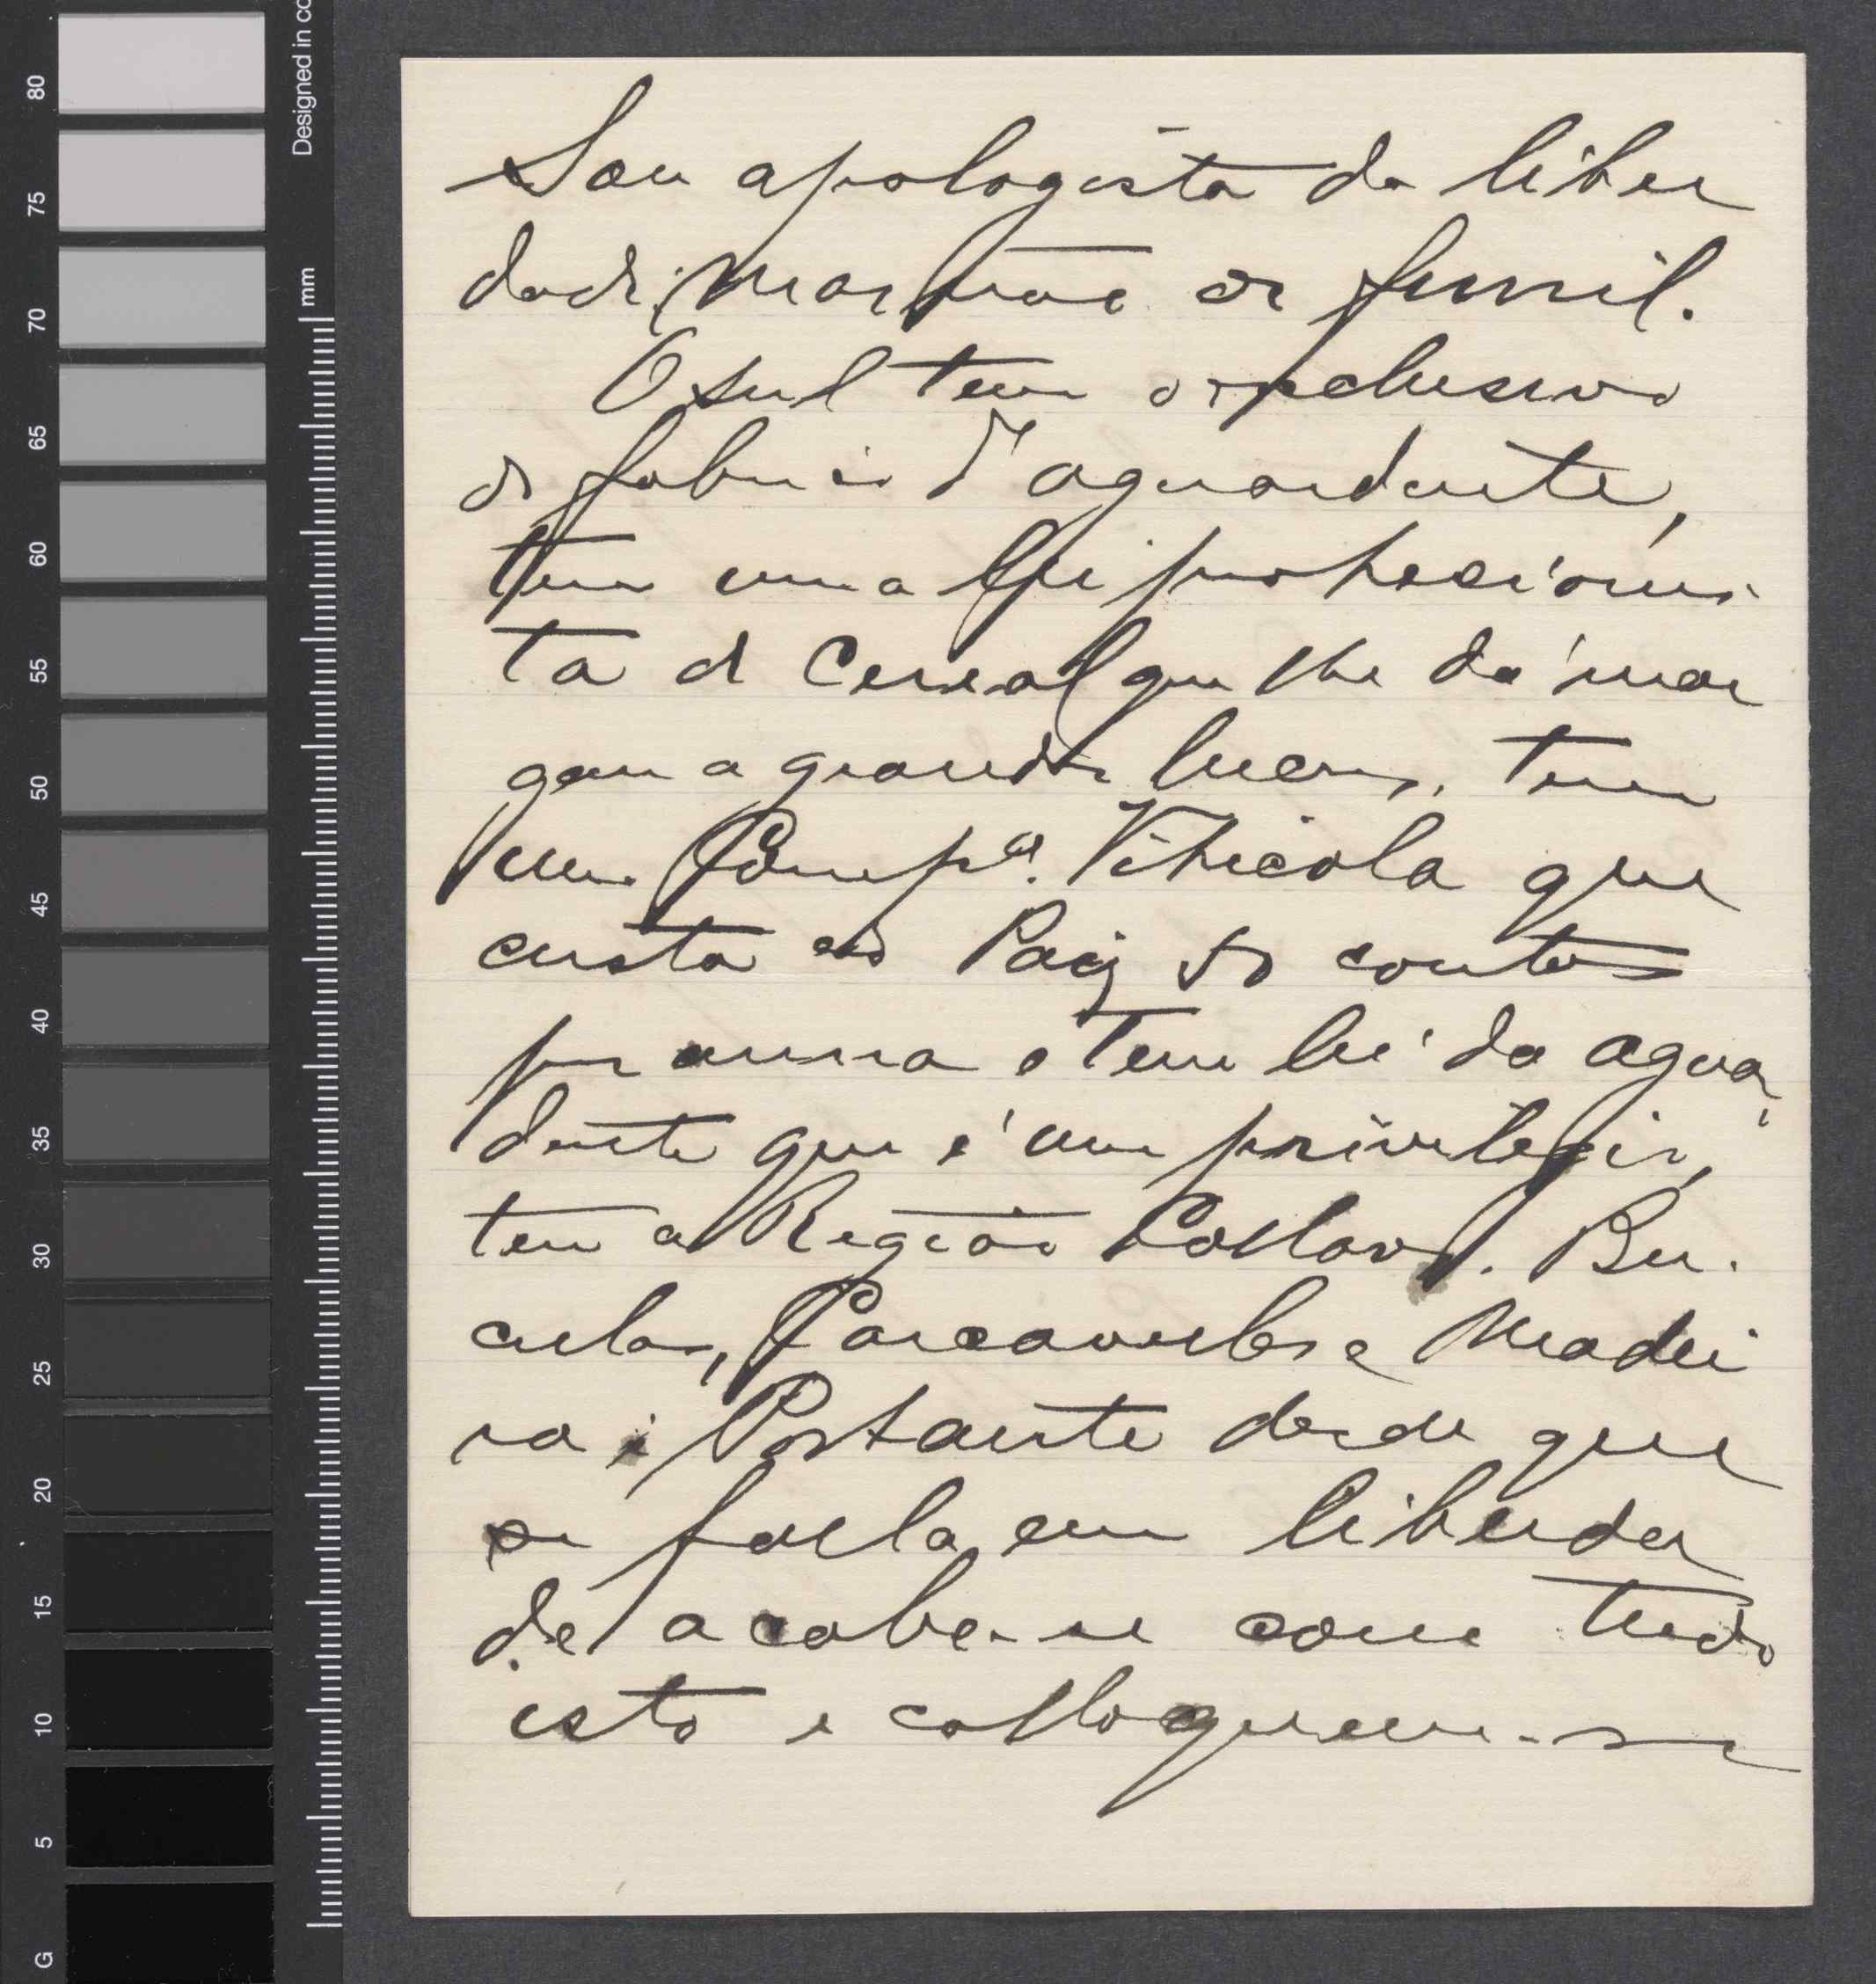 Designed in co
mm
80
75
70
65
60
55
50
45
40
35
30
25
20
15
10
5
G
Sou apologista da liber
dade, mas não de funil.
O sul tem o exclusivo
de fabrico d'aguardente,
tem uma lei protecionis
ta de Cereal que lhe dá mar
gem a grandes lucros, tem
uma Comp.ª Viticola que
custa ao Paiz 50 contos
por anno e tem lei da aguar
dente que é um privilegio,
tem a Região Collares. Bu-
cellas, Carcavellos e Madei
ra; Portante desde que
se falla em liberda
de acabe-se com tudo
isto e colloquem-se